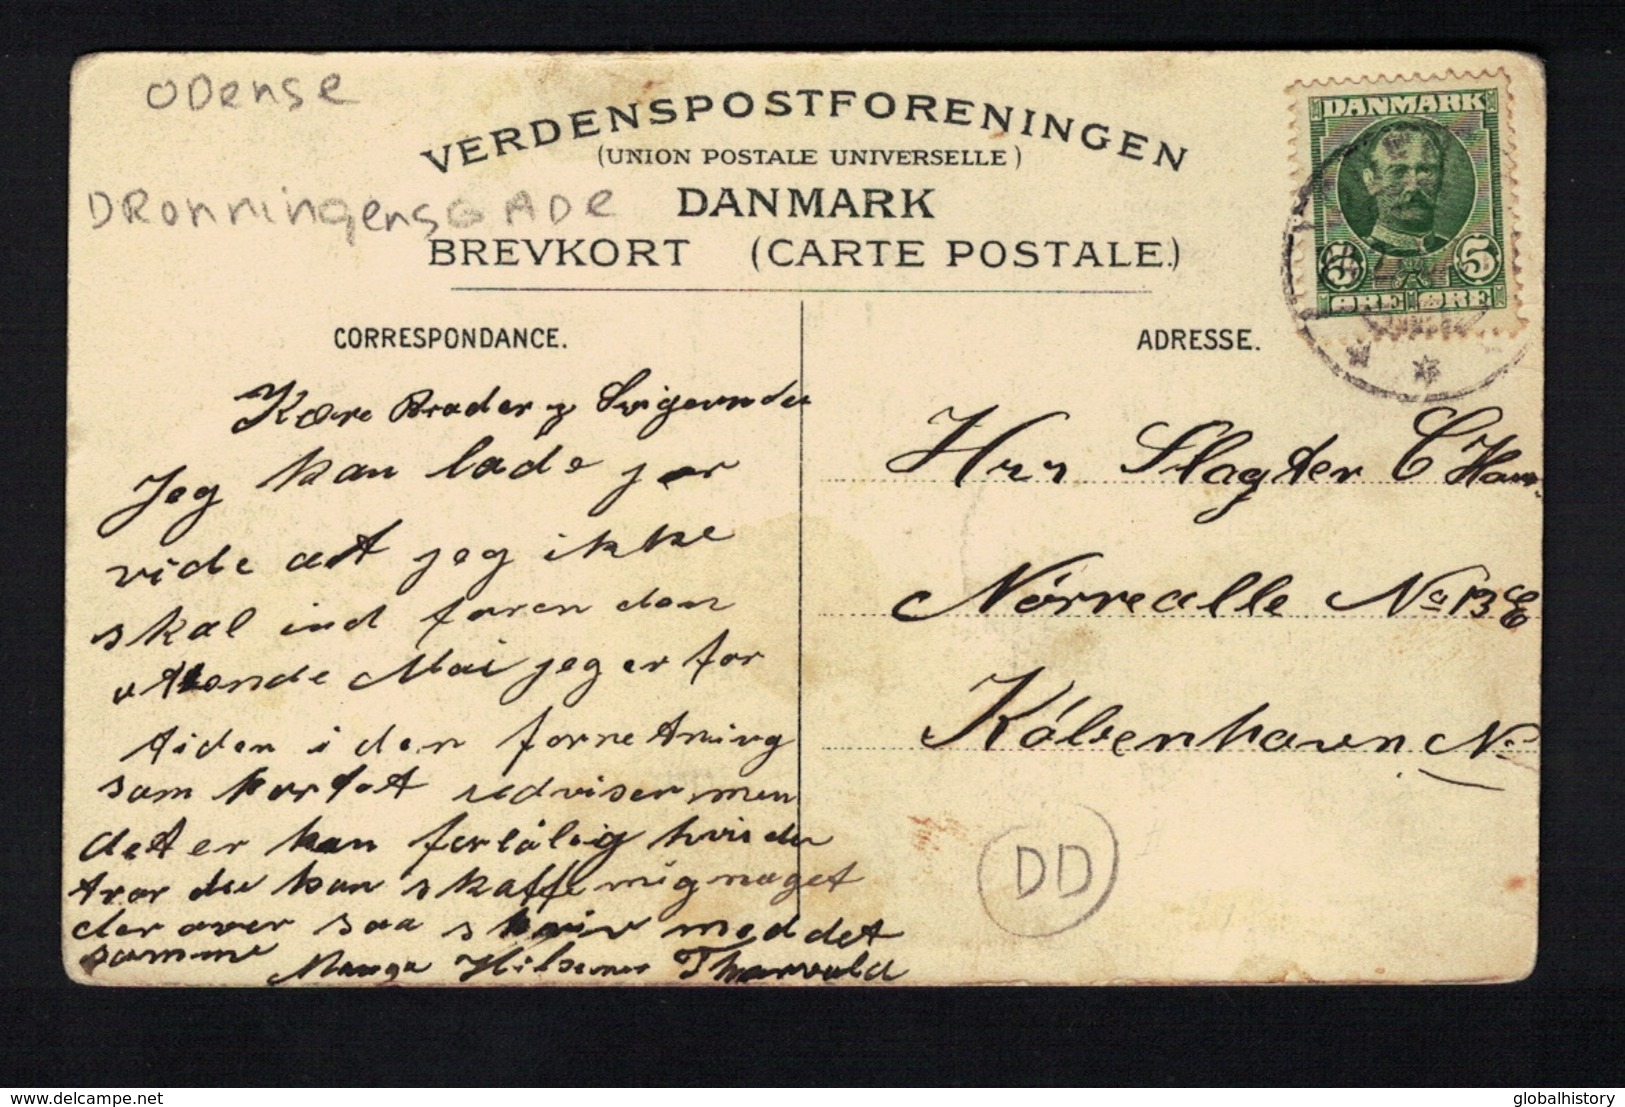 ODense
DRonningensGADe
VERDENSPOSTFORENINGEN
(UNION POSTALE UNIVERSELLE)
DANMARK
BREVKORT (CARTE POSTALE.)
DANMARK
5 5
ØRE ØRE
CORRESPONDANCE.
ADRESSE.
Kære Broder og Svigerinde
Jeg kan lade jer
vide at jeg ikke
skal ind foren den
ottende Mai jeg er for
tiden i den forretning
som kortet udviser men
det er kun forløbig hvis du
tror du kan skaffe mig noget
der over saa skriv med det
samme Mange Hilsener Tharvald
Hrr Slagter C Han
Nörrealle No 13 E
Köbenhavn N
DD
delcampe.net
globalhistory